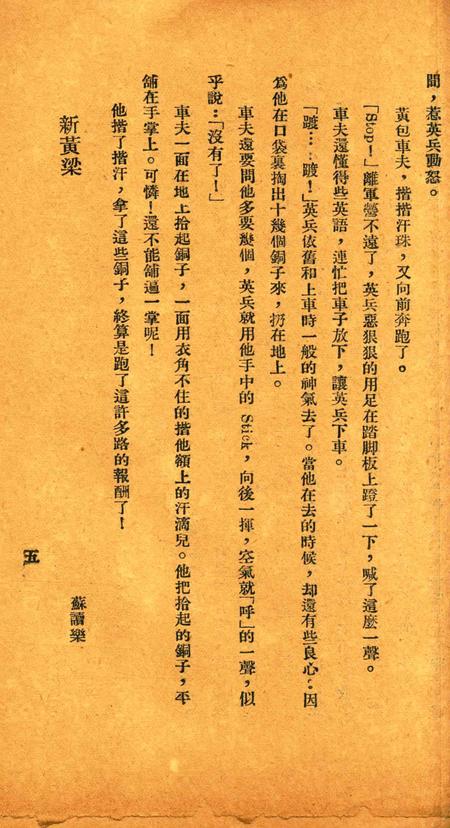 間，惹英兵動怒。
黃包車夫，揩揩汗珠，又向前奔跑了。
「Stop！」離軍營不遠了，英兵惡狠狠的用足在踏脚板上蹬了一下，喊了這麼一聲。
車夫還懂得些英語，連忙把車子放下，讓英兵下車。
「踱…：踱！」英兵依舊和上車時一般的神氣去了。當他在去的時候，却還有些良心：因
爲他在口袋裏掏出十幾個銅子來，扔在地上。
車夫還要問他多要幾個，英兵就用他手中的 Stick，向後一揮，空氣就「呼」的一聲，似
乎說：「沒有了！」
車夫一面在地上拾起銅子，一面用衣角不住的揩他額上的汗滴兒。他把拾起的銅子，平
舖在手掌上。可憐！還不能舖遍一掌呢！
他揩了揩汗，拿了這些銅子，終算是跑了這許多路的報酬了！
新黃梁
蘇讀樂
五